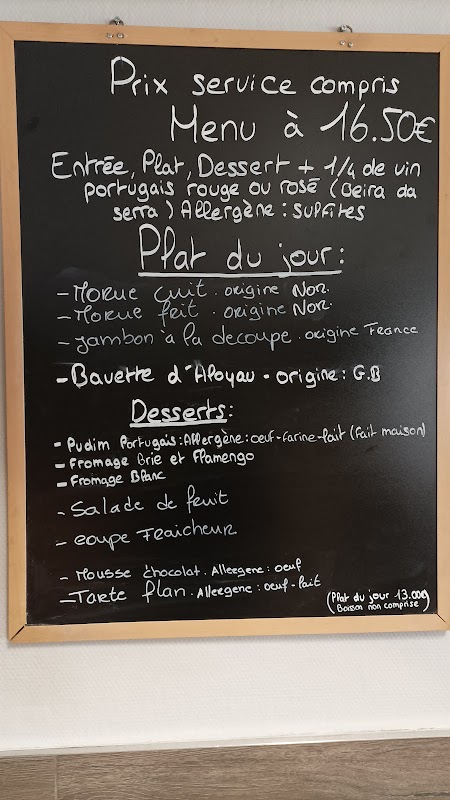 Prix service compris
Menu à 16.50€
Entrée, Plat, Dessert + 1/4 de vin
portugais rouge ou rosé (Beira da
serra) Allergène : Sulfites
Plat du jour :
- Morue cuit . origine Nor.
- Morue frit . origine Nor.
- Jambon à la decoupe . origine France
- Bavette d'Aloyau - origine : G.B
Desserts :
- Pudim Portugais : Allergène : oeuf-farine-lait (Fait maison)
- Fromage Brie et Flamengo
- Fromage Blanc
- Salade de fruit
- coupe Fraicheur
- Mousse chocolat . Allergene : oeuf
- Tarte flan . Allergene : oeuf-lait
(Plat du jour 13.00€
Boisson non comprise)